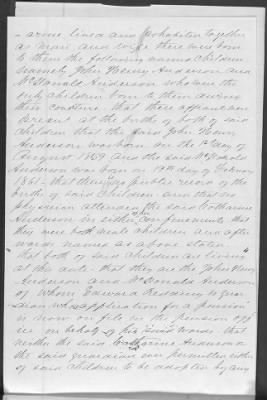 arime lived and cohabited together
as man and wife there were born
to them the following named children
namely John Henry Anderson and
McDonald Anderson who were the
only children born to them during
their coverture that these affiants were
present at the birth of both of said
children that the said John Henry
Anderson was born on the 1st day of
August 1859 and the said McDonald
Anderson was born on 19th day of February
1861 - that there is no public record of the
birth of said children and that no
physician attended the said Catharine
Anderson in either of her confinements that
they were both male children and after
wards named as above stated
that both of said children are living
at this date - that they are the John Henry
Anderson and McDonald Anderson
of whom Edward Redding is guar
dian whose application for a pension
is now on file in the pension off
ice on behalf of his said wards that
neither the said Catharine Anderson or
the said guardian ever permitted either
of said children to be adopted by any